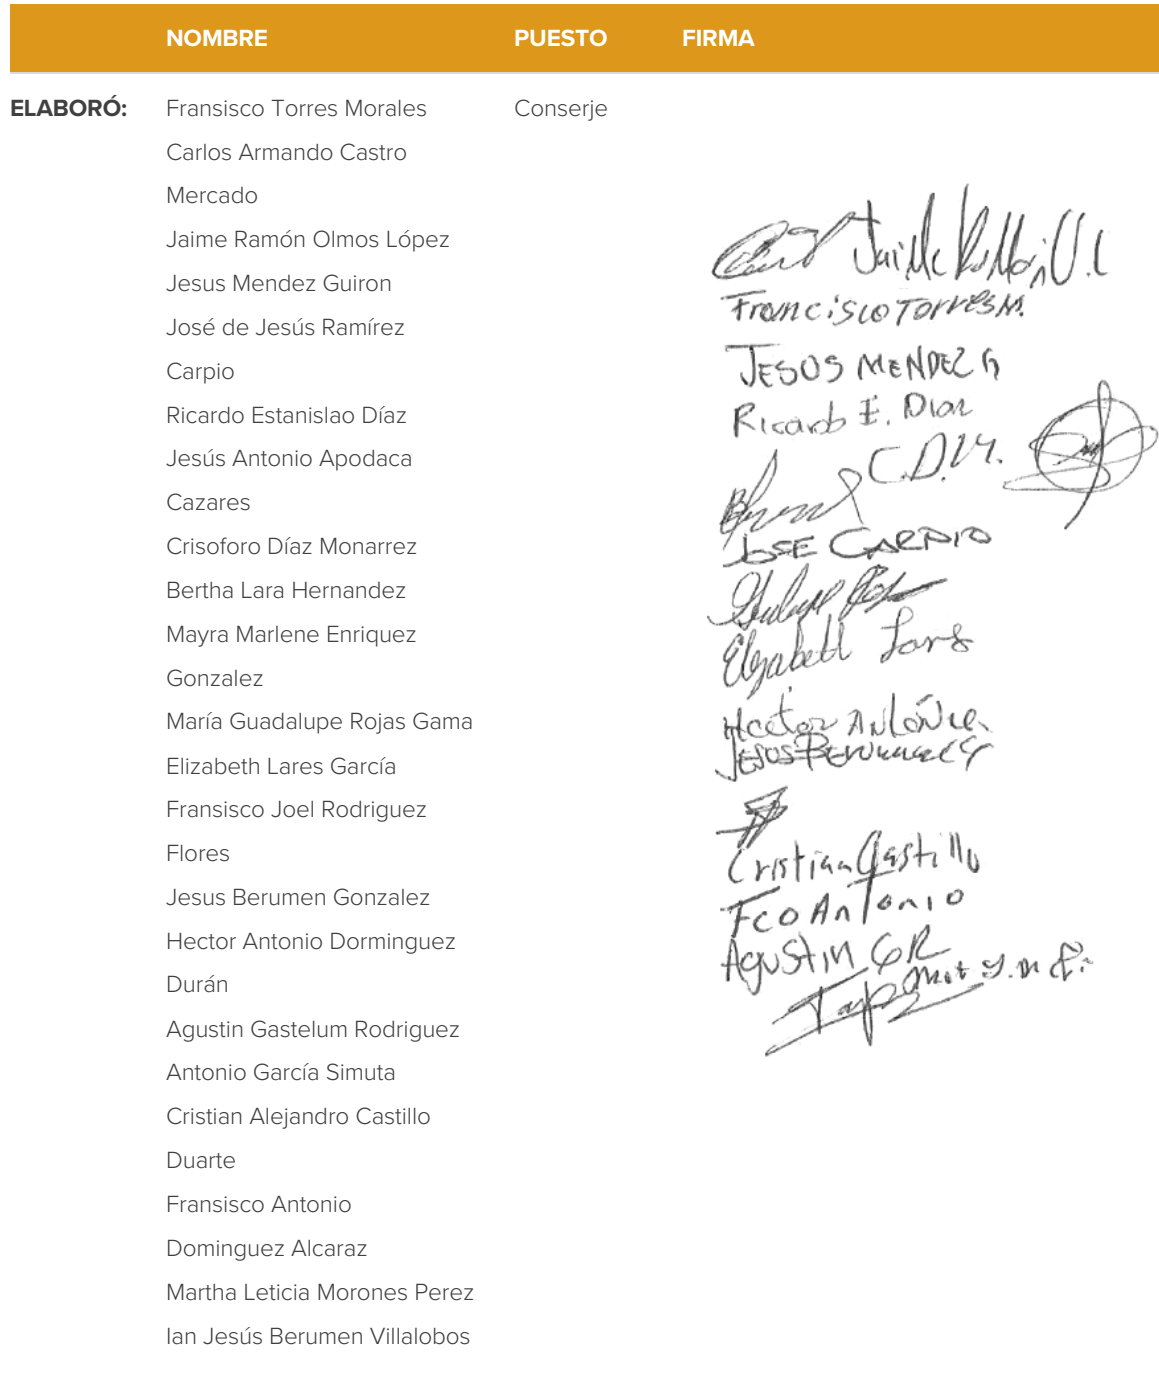 NOMBRE PUESTO FIRMA
ELABORÓ: Fransisco Torres Morales Conserje
Carlos Armando Castro
Mercado
Jaime Ramón Olmos López
Jesus Mendez Guiron
José de Jesús Ramírez
Carpio
Ricardo Estanislao Díaz
Jesús Antonio Apodaca
Cazares
Crisoforo Díaz Monarrez
Bertha Lara Hernandez
Mayra Marlene Enriquez
Gonzalez
María Guadalupe Rojas Gama
Elizabeth Lares García
Fransisco Joel Rodriguez
Flores
Jesus Berumen Gonzalez
Hector Antonio Dorminguez
Durán
Agustin Gastelum Rodriguez
Antonio García Simuta
Cristian Alejandro Castillo
Duarte
Fransisco Antonio
Dominguez Alcaraz
Martha Leticia Morones Perez
Ian Jesús Berumen Villalobos
Francisco Torres M.
JESUS MENDEZ G
Ricardo E. Diaz
JOSE CARPIO
Elizabeth Lares
Hector Antonio
JESUS BERUMEN G
Cristian Castillo
Fco Antonio
Agustin GR